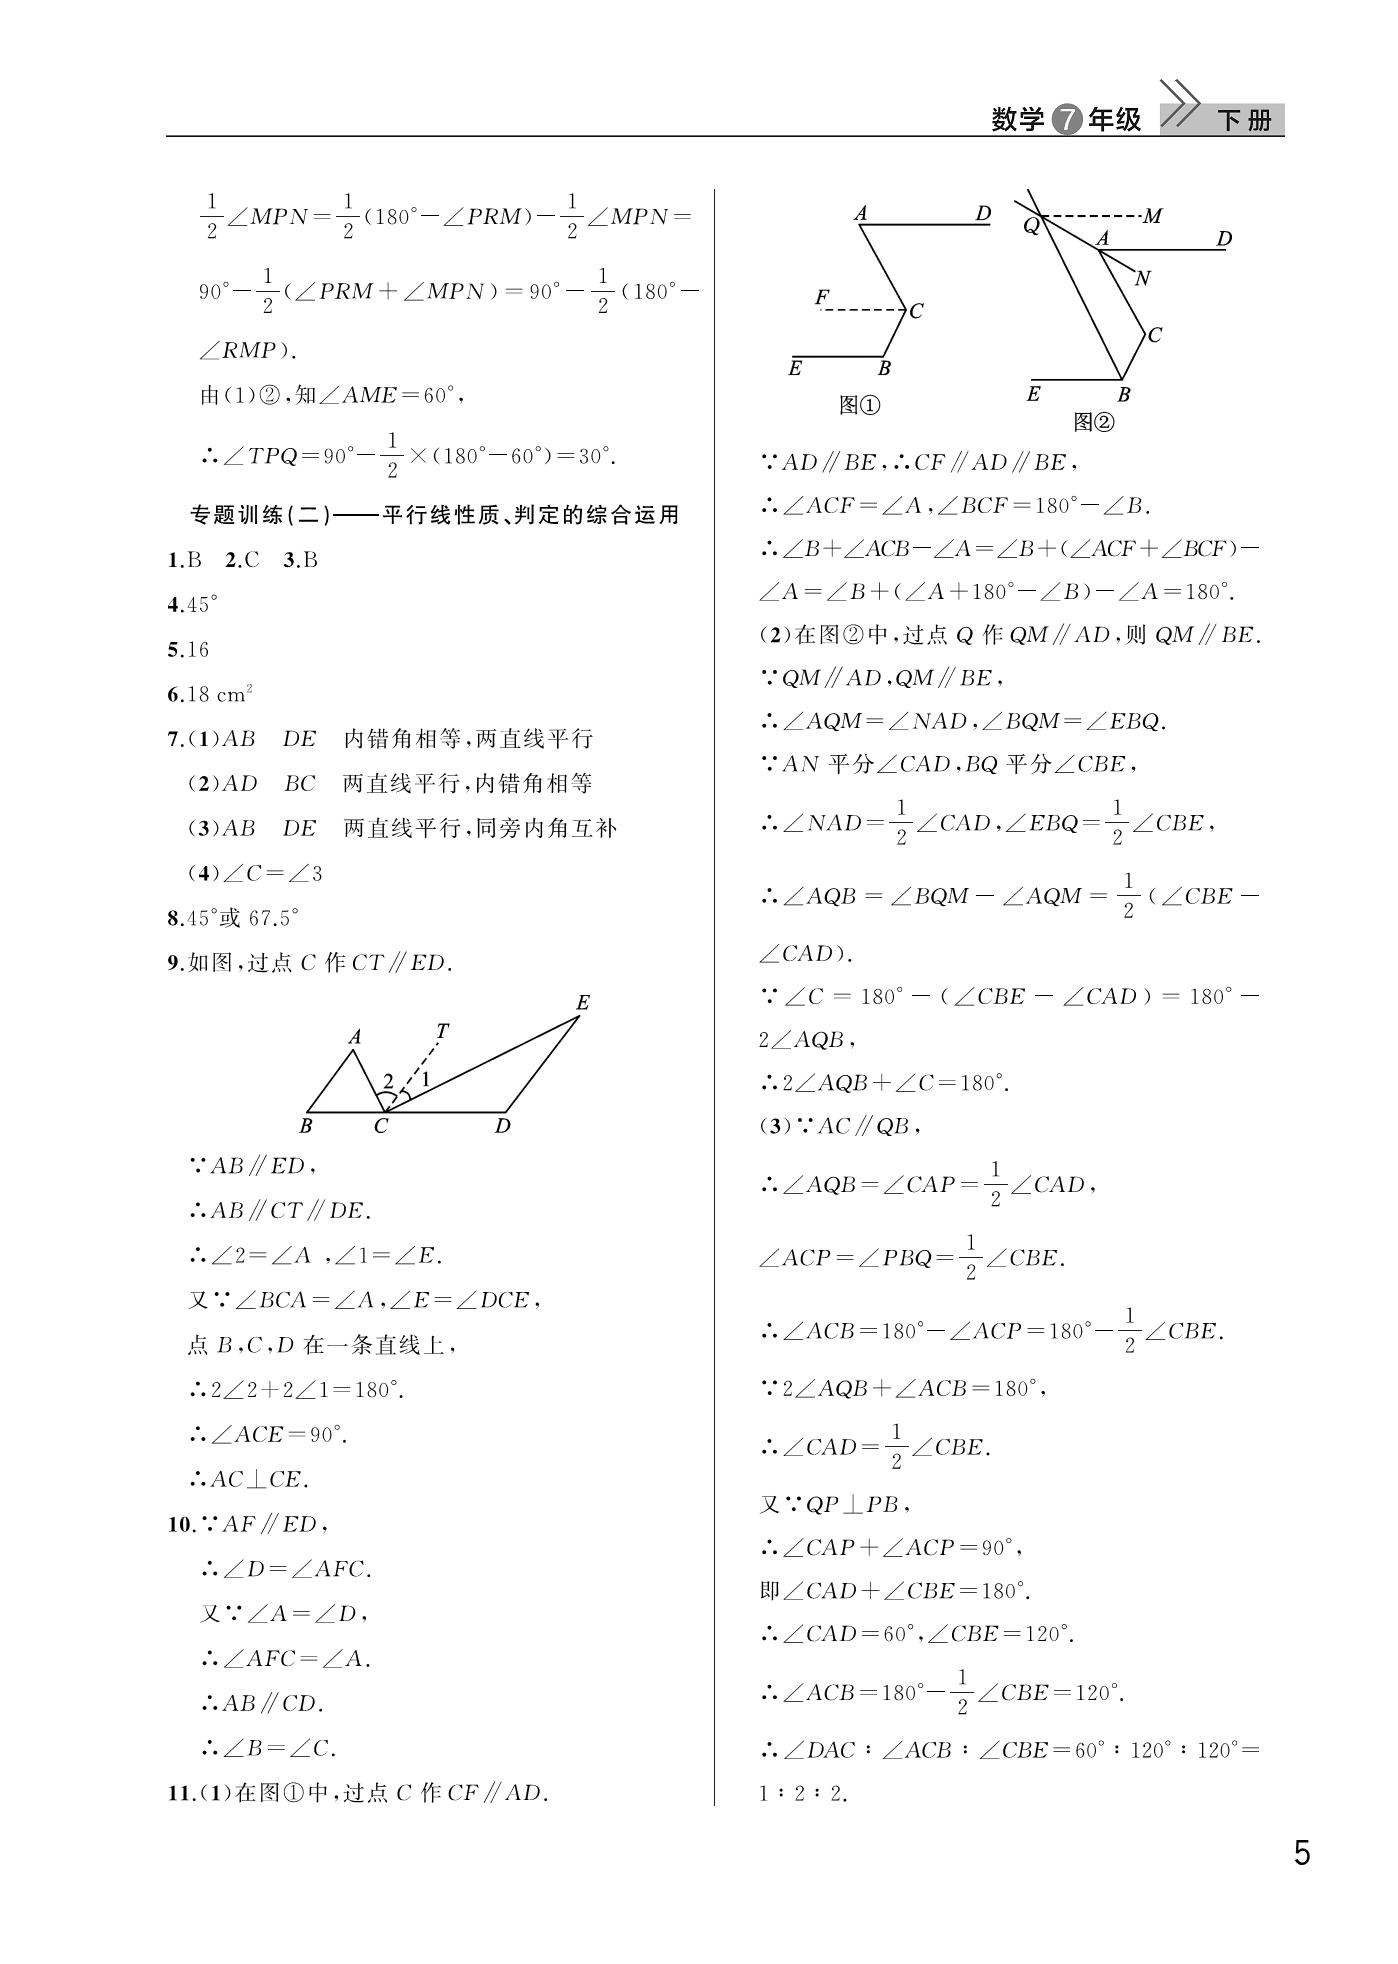 数学7年级 下册
1/2∠MPN=1/2(180°-∠PRM)-1/2∠MPN=
90°-1/2(∠PRM+∠MPN)=90°-1/2(180°-
∠RMP).
由(1)②,知∠AME=60°,
∴∠TPQ=90°-1/2×(180°-60°)=30°.
专题训练(二)——平行线性质、判定的综合运用
1.B 2.C 3.B
4.45°
5.16
6.18 cm²
7.(1)AB DE 内错角相等,两直线平行
(2)AD BC 两直线平行,内错角相等
(3)AB DE 两直线平行,同旁内角互补
(4)∠C=∠3
8.45°或 67.5°
9.如图,过点 C 作 CT∥ED.
E
A T
2 1
B C D
∵AB∥ED,
∴AB∥CT∥DE.
∴∠2=∠A ,∠1=∠E.
又∵∠BCA=∠A,∠E=∠DCE,
点 B,C,D 在一条直线上,
∴2∠2+2∠1=180°.
∴∠ACE=90°.
∴AC⊥CE.
10.∵AF∥ED,
∴∠D=∠AFC.
又∵∠A=∠D,
∴∠AFC=∠A.
∴AB∥CD.
∴∠B=∠C.
11.(1)在图①中,过点 C 作 CF∥AD.
A D
F C
E B
图①
Q M
A D
N
C
E B
图②
∵AD∥BE,∴CF∥AD∥BE,
∴∠ACF=∠A,∠BCF=180°-∠B.
∴∠B+∠ACB-∠A=∠B+(∠ACF+∠BCF)-
∠A=∠B+(∠A+180°-∠B)-∠A=180°.
(2)在图②中,过点 Q 作 QM∥AD,则 QM∥BE.
∵QM∥AD,QM∥BE,
∴∠AQM=∠NAD,∠BQM=∠EBQ.
∵AN 平分∠CAD,BQ 平分∠CBE,
∴∠NAD=1/2∠CAD,∠EBQ=1/2∠CBE,
∴∠AQB=∠BQM-∠AQM=1/2(∠CBE-
∠CAD).
∵∠C=180°-(∠CBE-∠CAD)=180°-
2∠AQB,
∴2∠AQB+∠C=180°.
(3)∵AC∥QB,
∴∠AQB=∠CAP=1/2∠CAD,
∠ACP=∠PBQ=1/2∠CBE.
∴∠ACB=180°-∠ACP=180°-1/2∠CBE.
∵2∠AQB+∠ACB=180°,
∴∠CAD=1/2∠CBE.
又∵QP⊥PB,
∴∠CAP+∠ACP=90°,
即∠CAD+∠CBE=180°.
∴∠CAD=60°,∠CBE=120°.
∴∠ACB=180°-1/2∠CBE=120°.
∴∠DAC∶∠ACB∶∠CBE=60°∶120°∶120°=
1∶2∶2.
5